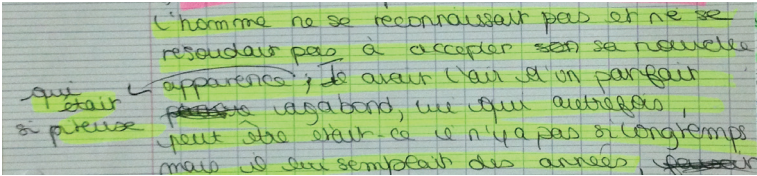 L'homme ne se reconnaissait pas et ne se
resoudait pas à accepter sa nouvelle
qui était si piteuse
apparence ; Il avait l'air d'un parfait
vagabond, lui qui autrefois,
peut être était-ce il n'y a pas si longtemps
mais il lui semblait des années,